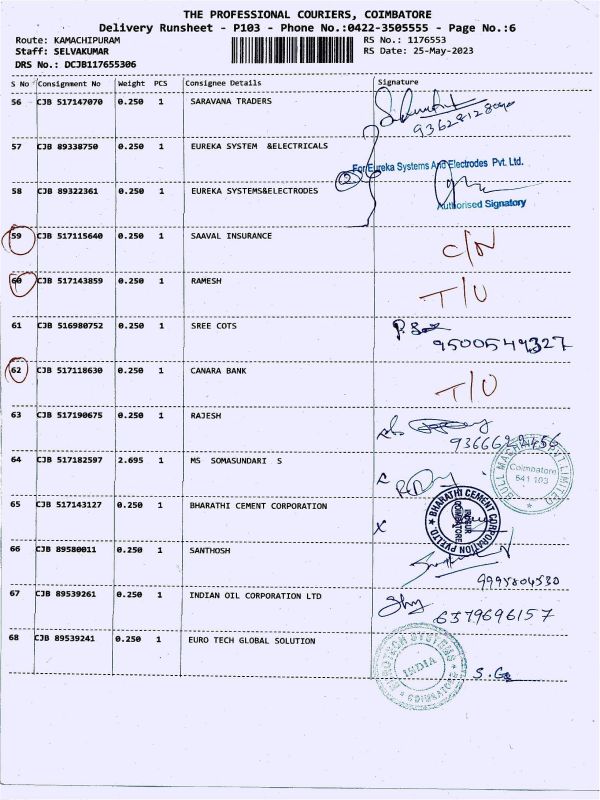 THE PROFESSIONAL COURIERS, COIMBATORE
Delivery Runsheet - P103 - Phone No.:0422-3505555 - Page No.:6
Route: KAMACHIPURAM RS No.: 1176553
Staff: SELVAKUMAR RS Date: 25-May-2023
DRS No.: DCJB117655306
S No Consignment No Weight PCS Consignee Details Signature
56 CJB 517147070 0.250 1 SARAVANA TRADERS
57 CJB 89338750 0.250 1 EUREKA SYSTEM &ELECTRICALS
For Eureka Systems And Electrodes Pvt. Ltd.
58 CJB 89322361 0.250 1 EUREKA SYSTEMS&ELECTRODES 2
Authorised Signatory
59 CJB 517115640 0.250 1 SAAVAL INSURANCE C/N
60 CJB 517143859 0.250 1 RAMESH T/U
61 CJB 516980752 0.250 1 SREE COTS
9500549327
62 CJB 517118630 0.250 1 CANARA BANK T/U
63 CJB 517190675 0.250 1 RAJESH
9366622456
64 CJB 517182597 2.695 1 MS SOMASUNDARI S
BULL MACHINES PVT LIMITED
Coimbatore
641 103
65 CJB 517143127 0.250 1 BHARATHI CEMENT CORPORATION X
BHARATHI CEMENT CORPORATION PVT.LTD.
COIMBATORE
66 CJB 89580011 0.250 1 SANTHOSH
9995804530
67 CJB 89539261 0.250 1 INDIAN OIL CORPORATION LTD
6379696157
68 CJB 89539241 0.250 1 EURO TECH GLOBAL SOLUTION
EUROTECH SYSTEMS
INDIA
COIMBATORE